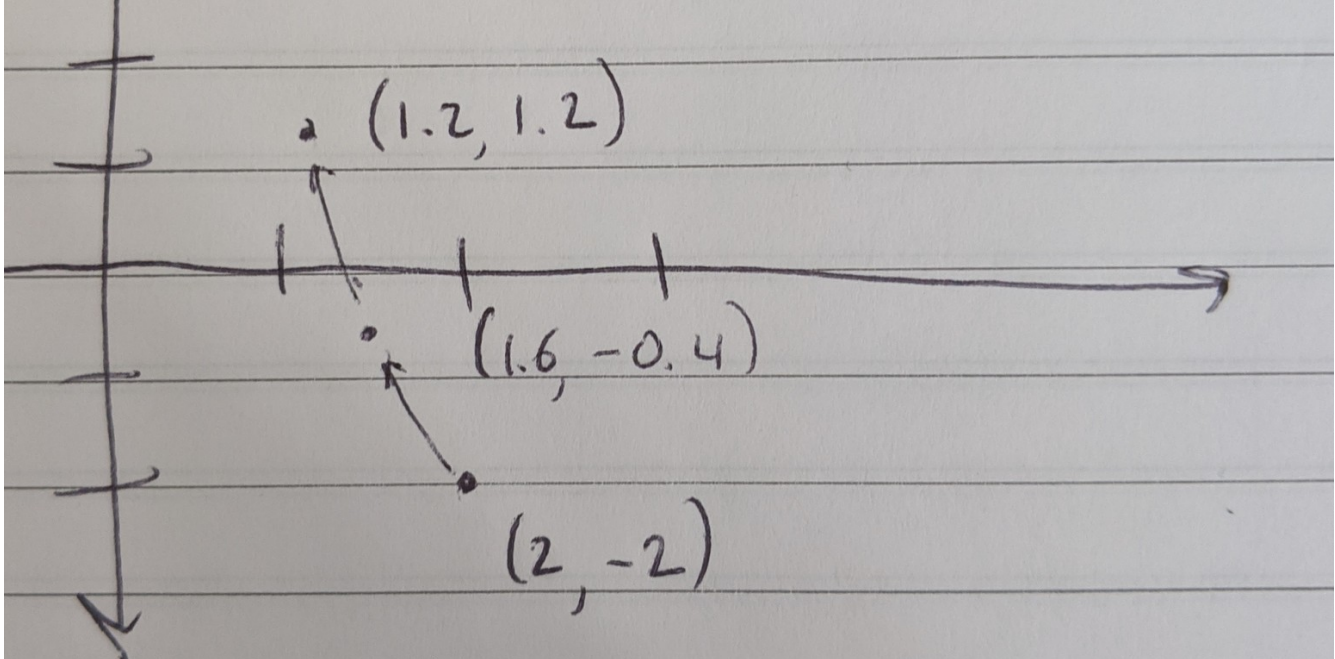 (1.2, 1.2)
(1.6, -0.4)
(2, -2)